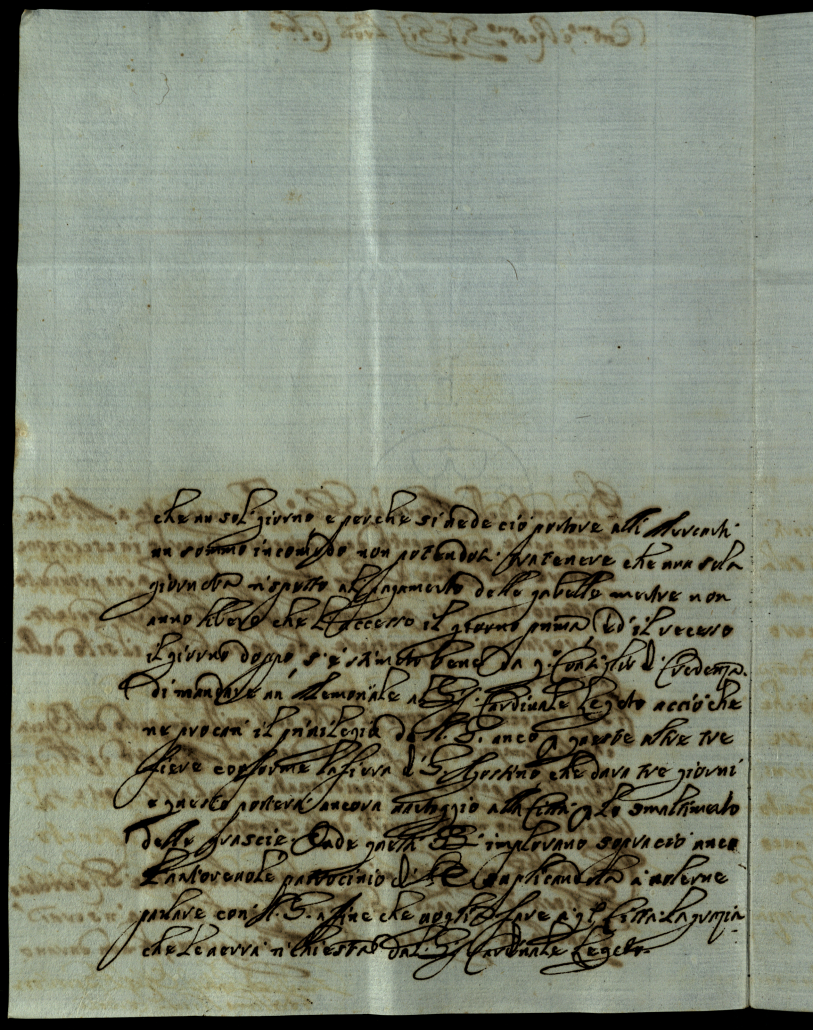 che un sol giorno e perche si vede ciò portare alli Mercanti
un sommo incomodo non potendosi tratenere che una sola
giornata rispetto al pagamento delle gabelle mentre non
anno libero che l'accesso il giorno prima, ed il recesso
il giorno doppò, s'è stimato bene da q. Consiglio di Credenza
di mandare un Memoriale al S. Cardinale Legato acciò che
ne procuri il privilegio da N. S. anco p queste altre tre
fiere conforme la fiera di S. Agostino che dura tre giorni
e questo porterà ancora vantaggio alla Città p lo smaltimento
delle grascie. Onde questi SS. implorano sopra ciò anco
l'autorevole patrocinio di supplicandola a volerne
parlare con N. S. affine che voglia fare a q. Città la grazia
che le verrà richiesta dal S. Cardinale Legato